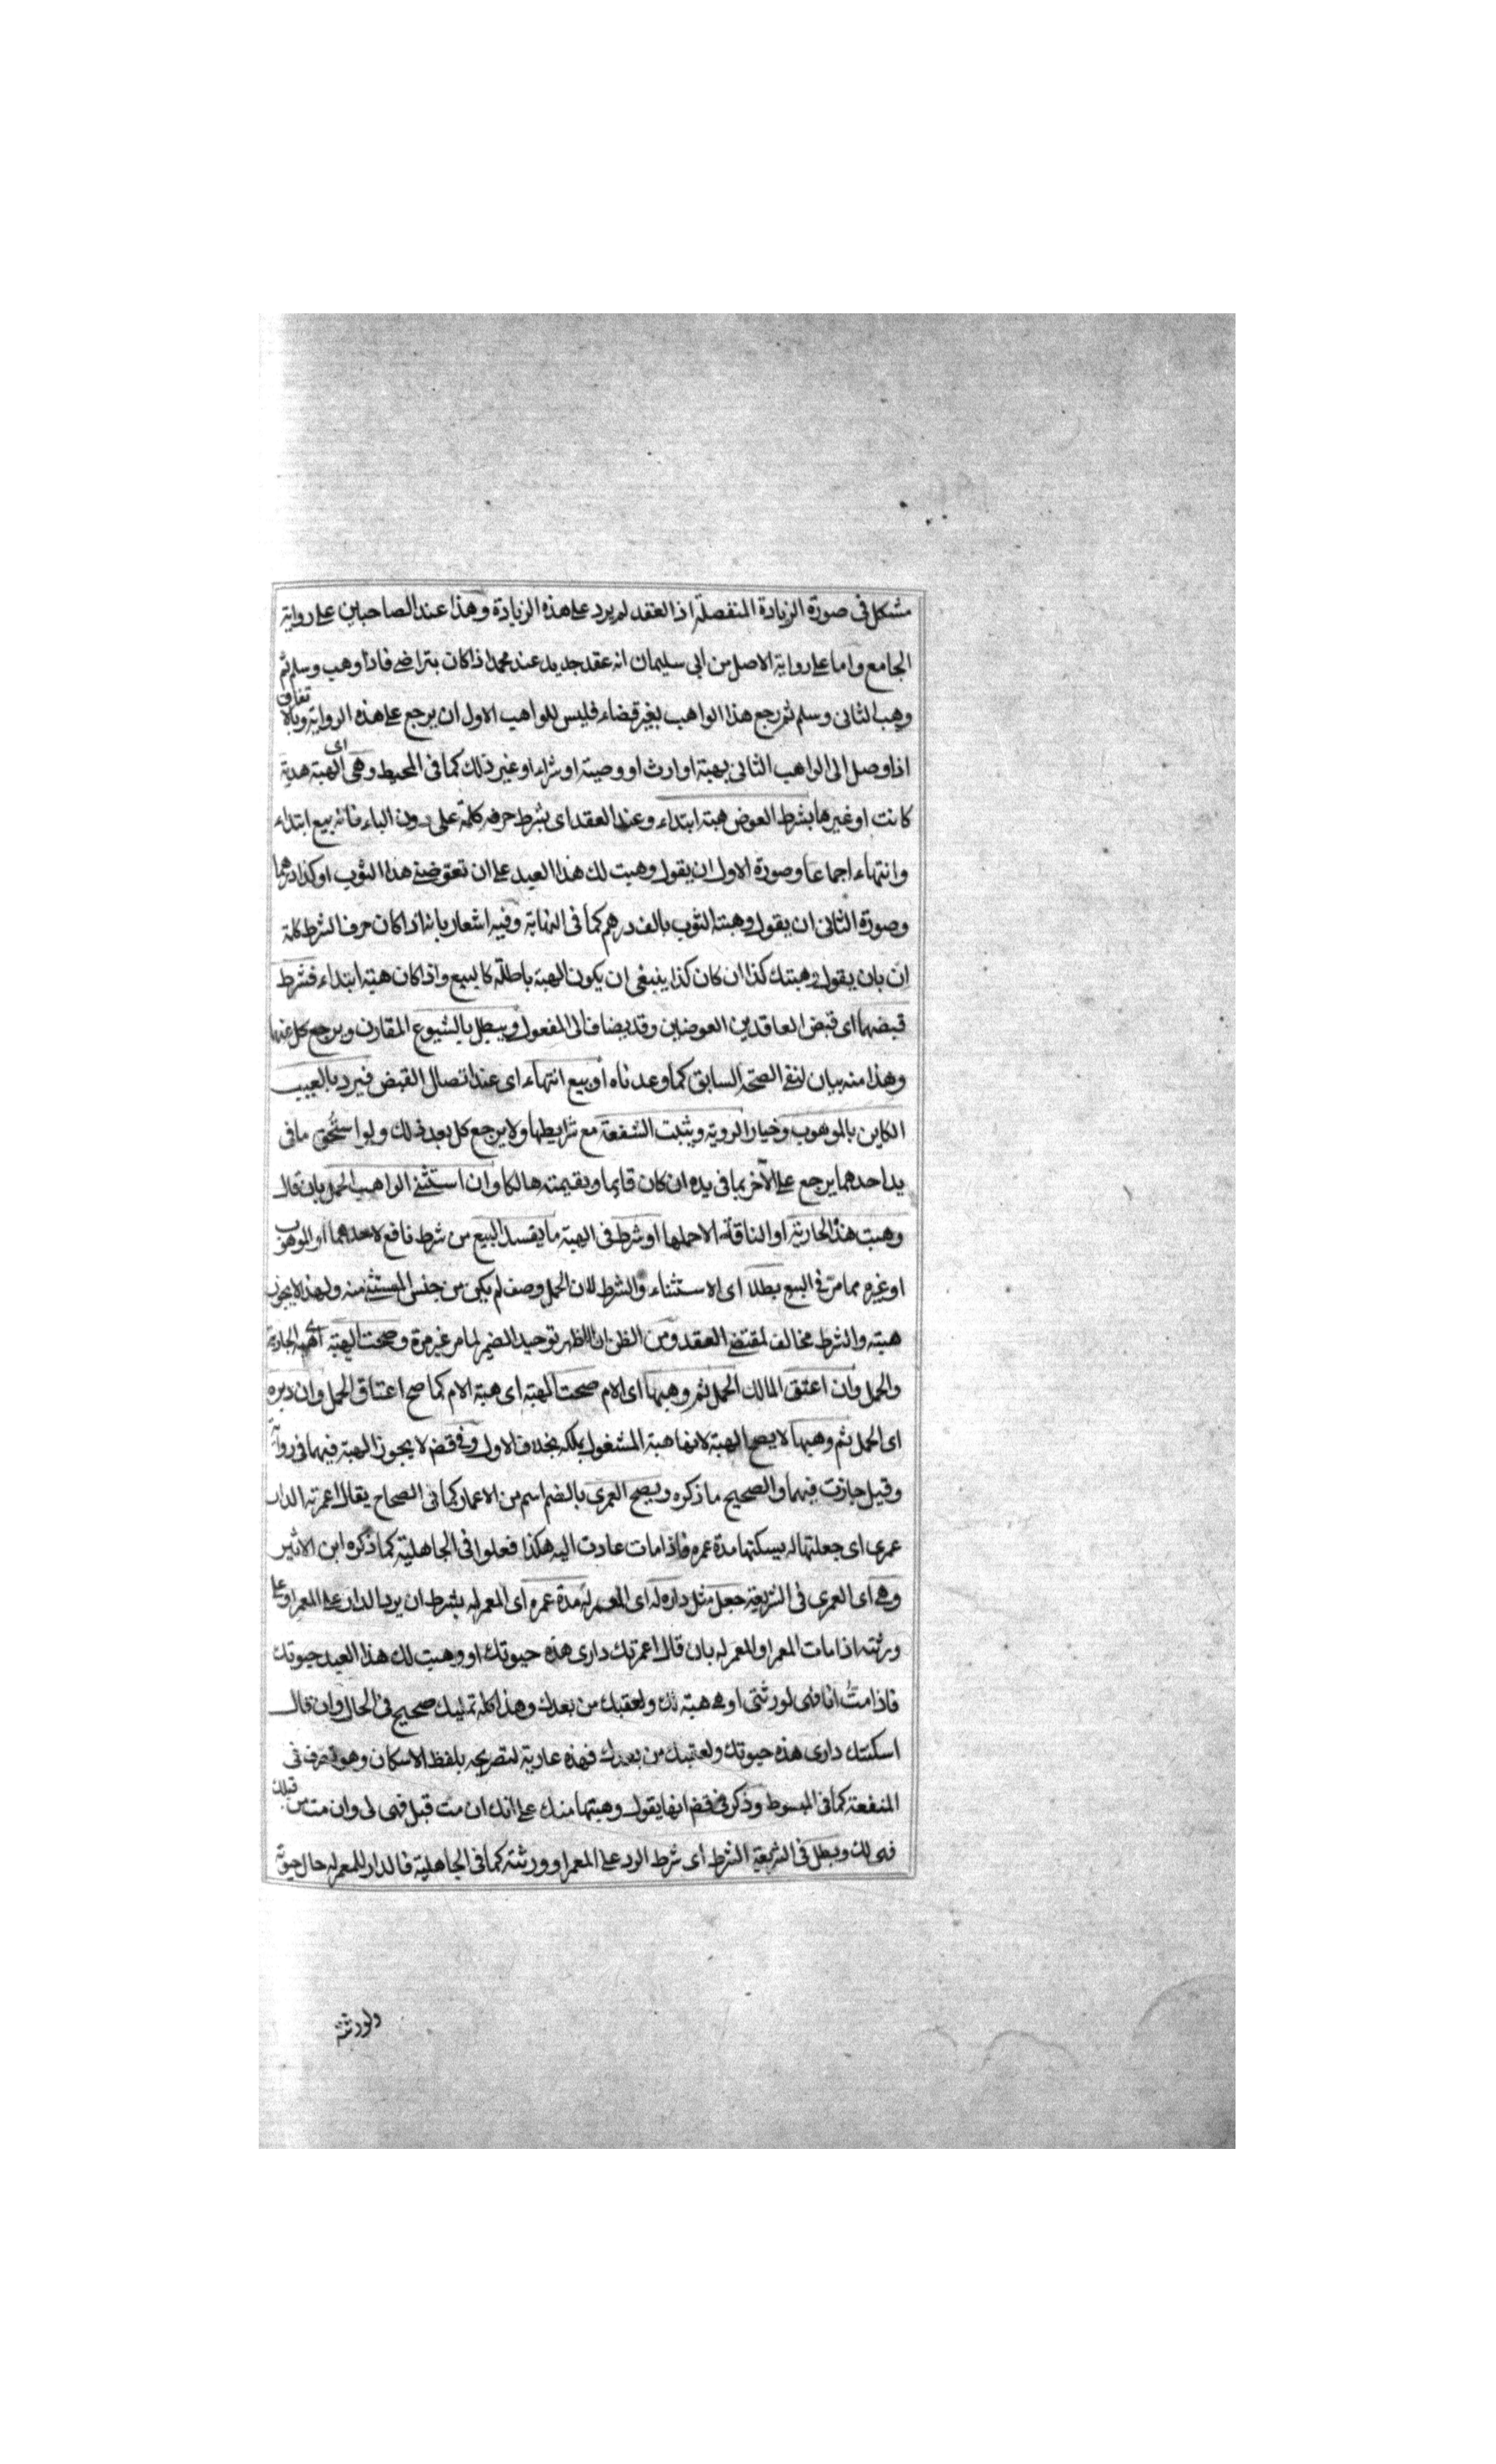 مشكل فى صورة الزيادة المنفصلة اذ العقد لم يرد على هذه الزيادة وهذا عند الصاحبين على رواية
الجامع واما على رواية الاصل من ابى سليمان انه عقد جديد عند محمد اذا كان بتراضى فاذا وهب وسلم ثم
وهب الثانى وسلم ثم رجع هذا الواهب بغير قضاء فليس للواهب الاول ان يرجع على هذه الرواية وبالاتفاق
اذا وصل الى الواهب الثانى بهبة او ارث او وصية او شراء او غير ذلك كما فى المحيط وهى اى الهبة هدية
كانت او غيرها بشرط العوض هبة ابتداء وعند العقد اى بشرط حرفه كلمة على دون الباء فانه بيع ابتداء
وانتهاء اجماعا وصورة الاول ان يقول وهبت لك هذا العبد على ان تعوضنى هذا الثوب او كذا درهما
وصورة الثانى ان يقول وهبته الثوب بالف درهم كما فى النهاية وفيه اشعار بانه اذا كان حرف الشرط كلمة
ان بان يقول وهبتك كذا ان كان كذا ينبغى ان يكون الهبة باطلة كالبيع واذا كان هبة ابتداء فشرط
قبضهما اى قبض العاقدين العوضين وقد يضاف الى المفعول ويبطل بالشيوع المقارن ويرجع كل عنها
وهذا منه بيان لنفى الصحة السابق كما وعدناه او بيع انتهاء اى عند اتصال القبض فيرد بالعيب
الكاين بالموهوب وخيار الروية ويثبت الشفعة مع شرايطها ولا يرجع كل بعد ذلك ولو استحق ما فى
يد احدهما يرجع على الآخر بما فى يده ان كان قايما وبقيمته هالكا وان استثنى الواهب الحمل بان قال
وهبت هذه الجارية او الناقة الا حملها او شرط فى الهبة ما يفسد البيع من شرط نافع لاحدهما او الموهوب
او غيره مما مر فى البيع بطلا اى الاستثناء والشرط لان الحمل وصف لم يكن من جنس المستثنى منه ولهذا لا يجوز
هبته والشرط مخالف لمقتضى العقد ومن الظن ان الظهر توحيد الضمير لما مر غير مرة وصحت الهبة اى هبة الجارية
والحمل وان اعتق المالك الحمل ثم وهبها اى الام صحت الهبة اى هبة الام كما صح اعتاق الحمل وان دبره
اى الحمل ثم وهبها لا يصح الهبة لانها هبة المشغول بملكه بخلاف الاول وفى قض لا يجوز الهبة فيهما فى رواية
وقيل جازت فيهما والصحيح ما ذكره ويصح العمرى بالضم اسم من الاعمار كما فى الصحاح يقال اعمرته الدار
عمرى اى جعلتها له يسكنها مدة عمره فاذا مات عادت اليه هكذا فعلوا فى الجاهلية كما ذكره ابن الاثير
وهى اى العمرى فى الشريعة جعل مثل داره له اى المعمر له مدة عمره اى المعمر له بشرط ان يرد الدار على المعمر او على
ورثته اذا مات المعمر او المعمر له بان قال اعمرتك دارى هذه حيوتك او وهبت لك هذا العبد حيوتك
فاذا مت انا فهى لورثتى او هى هبة لك ولعقبك من بعدك وهذا كله تمليك صحيح فى الحال وان قال
اسكنتك دارى هذه حيوتك ولعقبك من بعدك فهذه عارية لتصريحه بلفظ الاسكان وهو تصرف فى
المنفعة كما فى المبسوط وذكر فى قض انها يقول وهبتها منك على انك ان مت قبلى فهى لى وان مت من قبلك
فهى لك ويبطل فى الشريعة الشرط اى شرط الرد على المعمر او ورثته كما فى الجاهلية فالدار للمعمر له حال حيوته
ولورثته